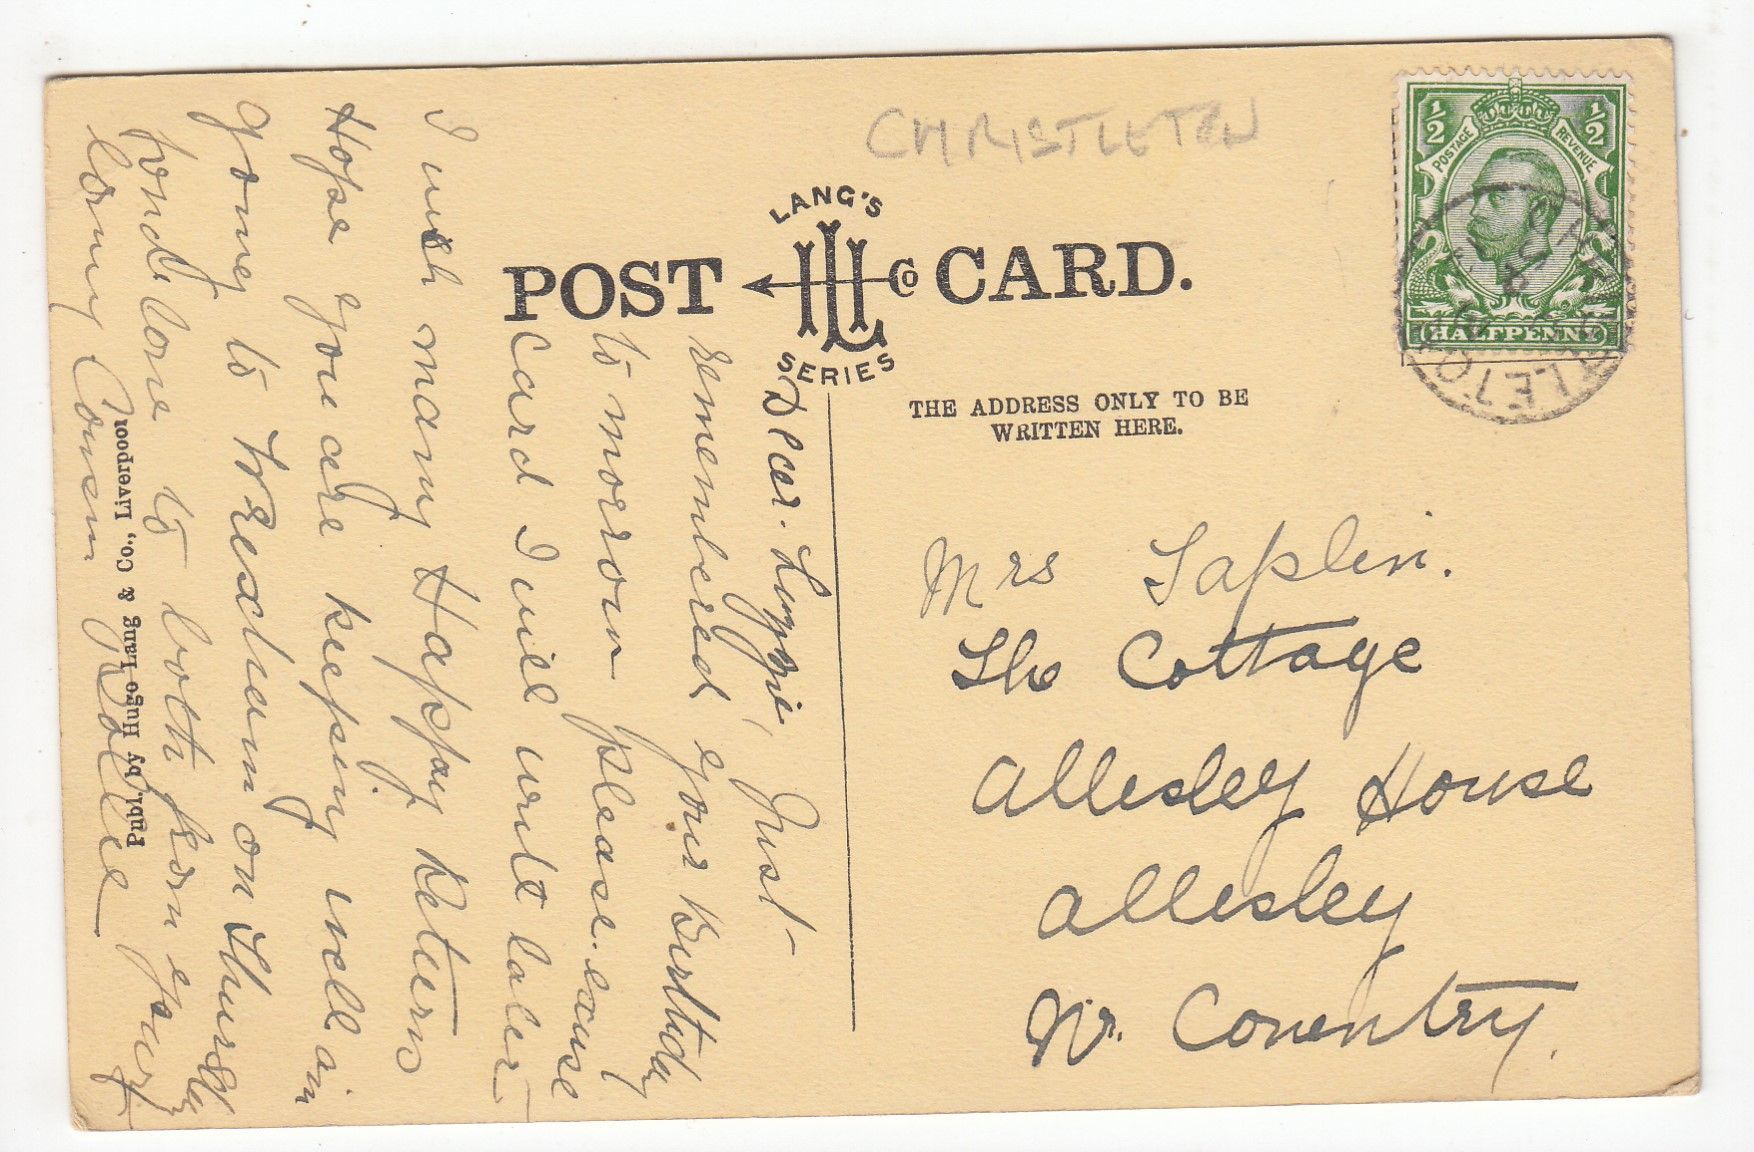 CHRISTLETON
LANG'S
POST HLL Co CARD.
SERIES
THE ADDRESS ONLY TO BE
WRITTEN HERE.
½ ½
POSTAGE REVENUE
HALFPENNY
Mrs Taplin.
The Cottage
Allesley House
Allesley
Nr. Coventry.
Dear Lizzie, Just
remembered your Birthday
to morrow please. excuse
Card I will write later
I wish many Happy Returns
Hope you are keeping well am
going to Wrexham on Thursday
fond love to both from your
loving Cousin
Publ. by Hugo Lang & Co., Liverpool